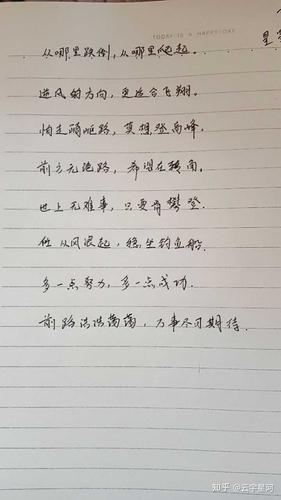 TODAY IS A HAPPY DAY
星
从哪里跌倒,从哪里爬起。
逆风的方向,更适合飞翔。
怕走崎岖路,莫想登高峰。
前方无绝路,希望在转角。
世上无难事,只要肯攀登.
任从风浪起,稳坐钓鱼船.
多一点努力,多一点成功.
前路浩浩荡荡,万事尽可期待.
知乎 @云宇星河